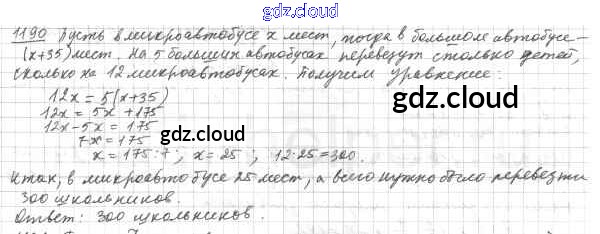 gdz.cloud
1190 Пусть в микроавтобусе x мест, тогда в большом автобусе -
(x+35) мест. На 5 больших автобусах перевезут столько детей,
сколько на 12 микроавтобусах. Получим уравнение:
12x = 5(x+35)
gdz.cloud
12x = 5x + 175
12x - 5x = 175
gdz.cloud
7x = 175
x = 175:7; x = 25; 12·25 = 300.
Итак, в микроавтобусе 25 мест, а всего нужно было перевезти
300 школьников.
Ответ: 300 школьников.
gdz.cloud